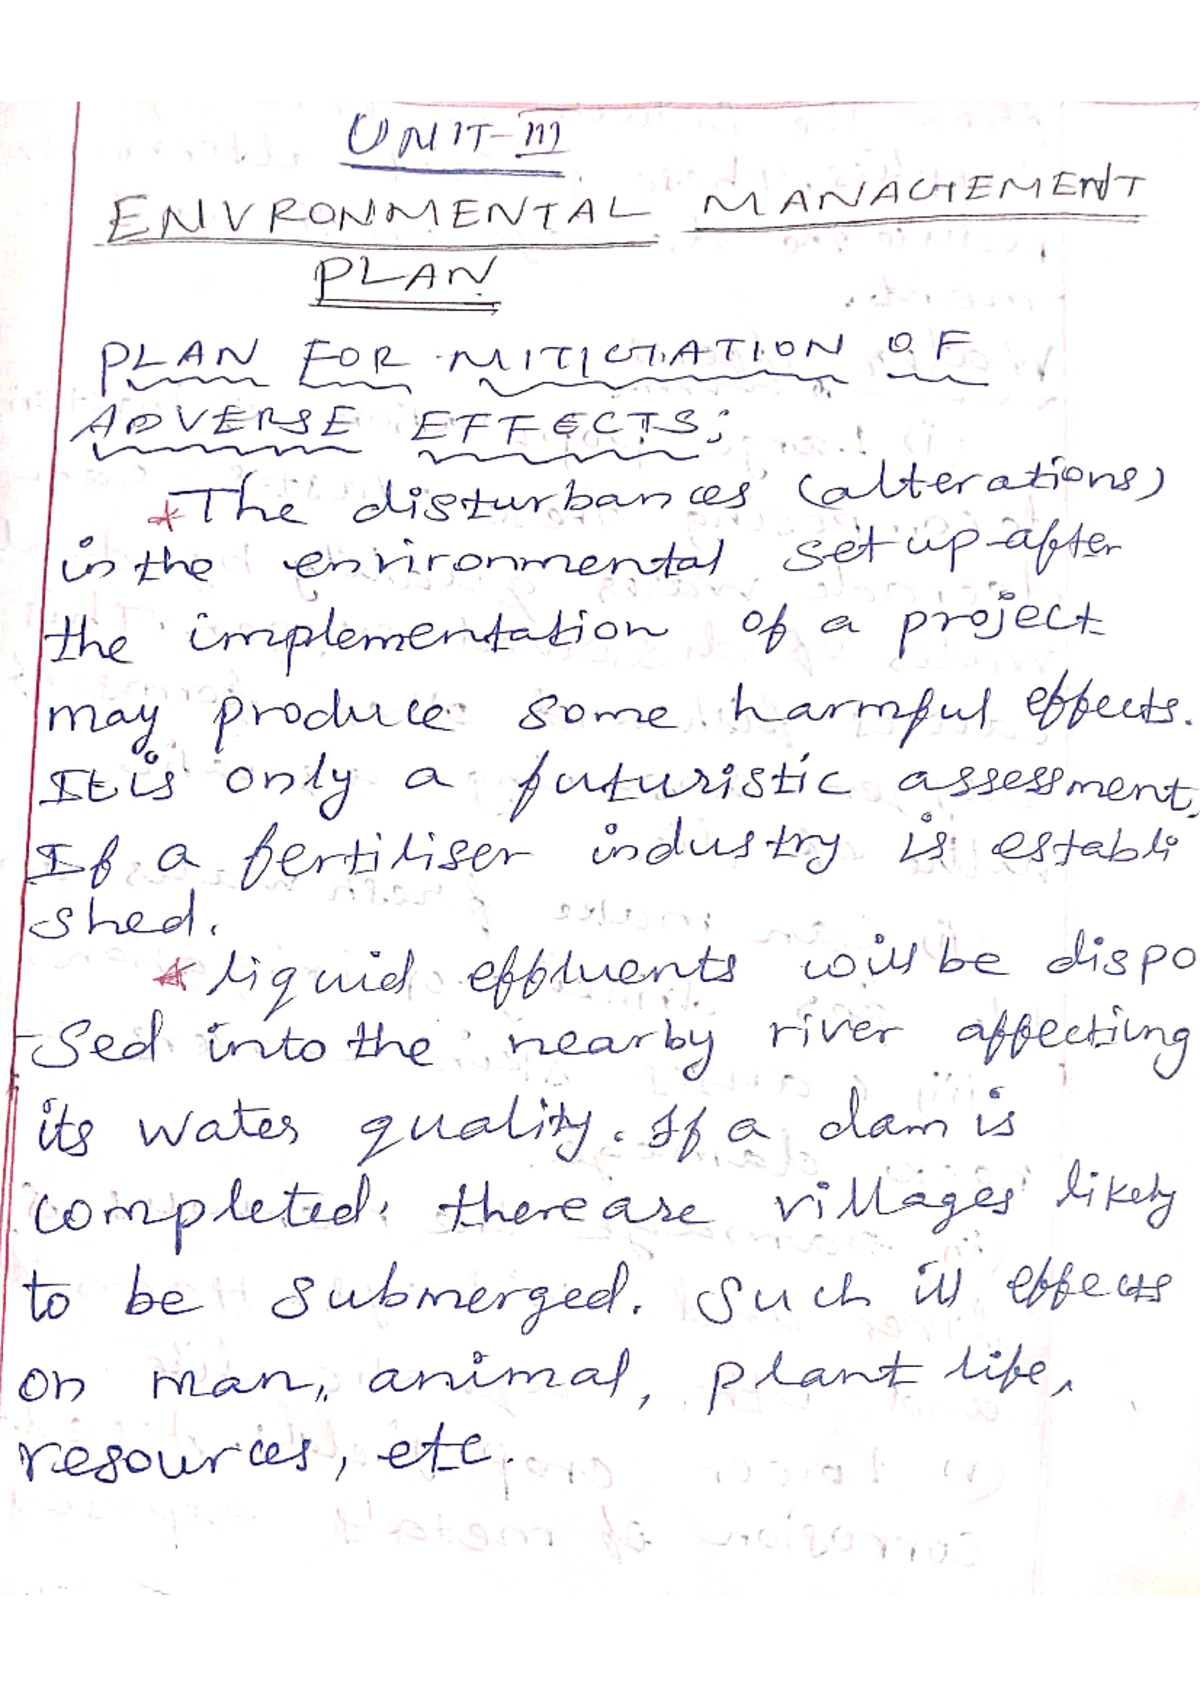 UNIT-III
ENVRONMENTAL MANAGEMENT
PLAN
PLAN FOR MITIGATION OF
ADVERSE EFFECTS:
*The disturbances (alterations)
in the environmental set up after
the implementation of a project
may produce some harmful effects.
It is only a futuristic assessment.
If a fertiliser industry is establi
shed.
* liquid effluents will be dispo
-sed into the nearby river affectiung
its water quality. If a dam is
completed. there are villages likely
to be submerged. Such ill effects
on man, animal, plant life,
resources, etc.